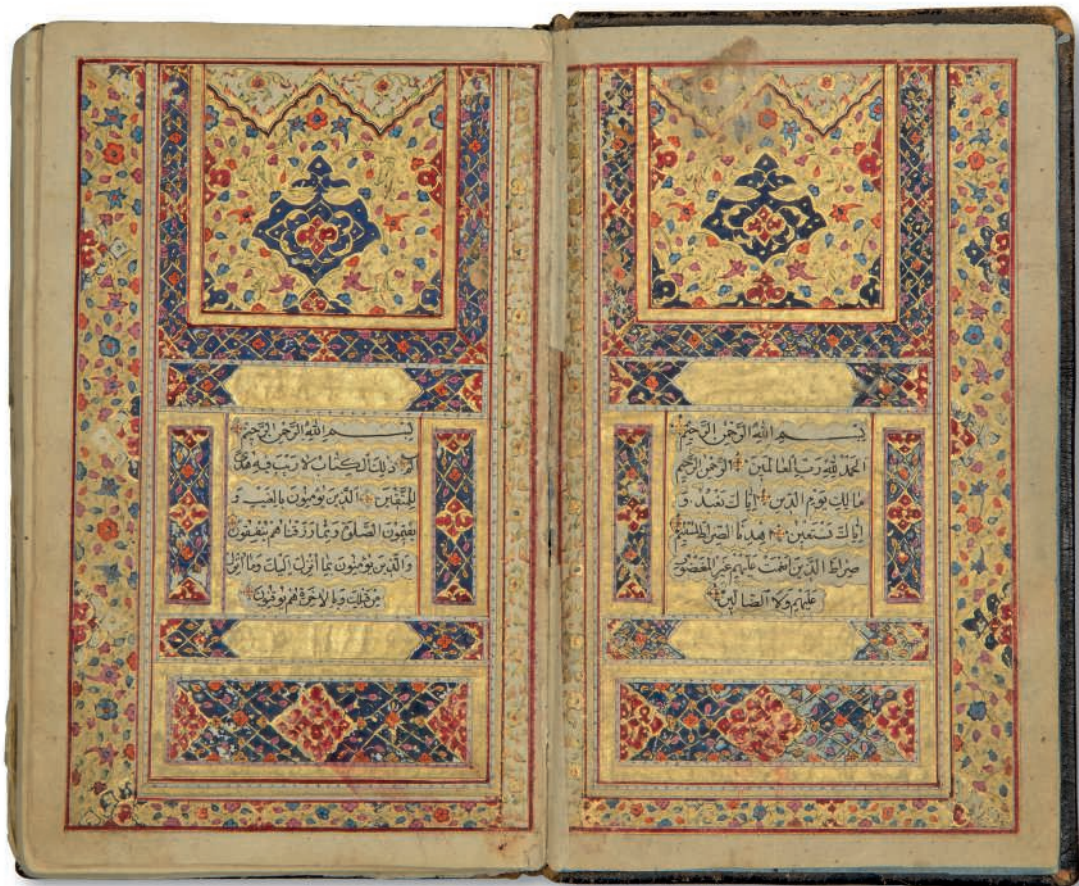 بِسْمِ اللهِ الرَّحْمٰنِ الرَّحِيْمِ
اَلْحَمْدُ لِلّٰهِ رَبِّ الْعَالَمِيْنَ الرَّحْمٰنِ الرَّحِيْمِ
مَالِكِ يَوْمِ الدِّيْنِ اِيَّاكَ نَعْبُدُ وَ
اِيَّاكَ نَسْتَعِيْنُ اِهْدِنَا الصِّرَاطَ الْمُسْتَقِيْمَ
صِرَاطَ الَّذِيْنَ اَنْعَمْتَ عَلَيْهِمْ غَيْرِ الْمَغْضُوْبِ
عَلَيْهِمْ وَلَا الضَّالِّيْنَ
بِسْمِ اللهِ الرَّحْمٰنِ الرَّحِيْمِ
الم ذٰلِكَ الْكِتَابُ لَا رَيْبَ فِيْهِ هُدًى
لِلْمُتَّقِيْنَ الَّذِيْنَ يُؤْمِنُوْنَ بِالْغَيْبِ وَ
يُقِيْمُوْنَ الصَّلٰوةَ وَمِمَّا رَزَقْنَاهُمْ يُنْفِقُوْنَ
وَالَّذِيْنَ يُؤْمِنُوْنَ بِمَا اُنْزِلَ اِلَيْكَ وَمَا اُنْزِلَ
مِنْ قَبْلِكَ وَبِالْاٰخِرَةِ هُمْ يُوْقِنُوْنَ